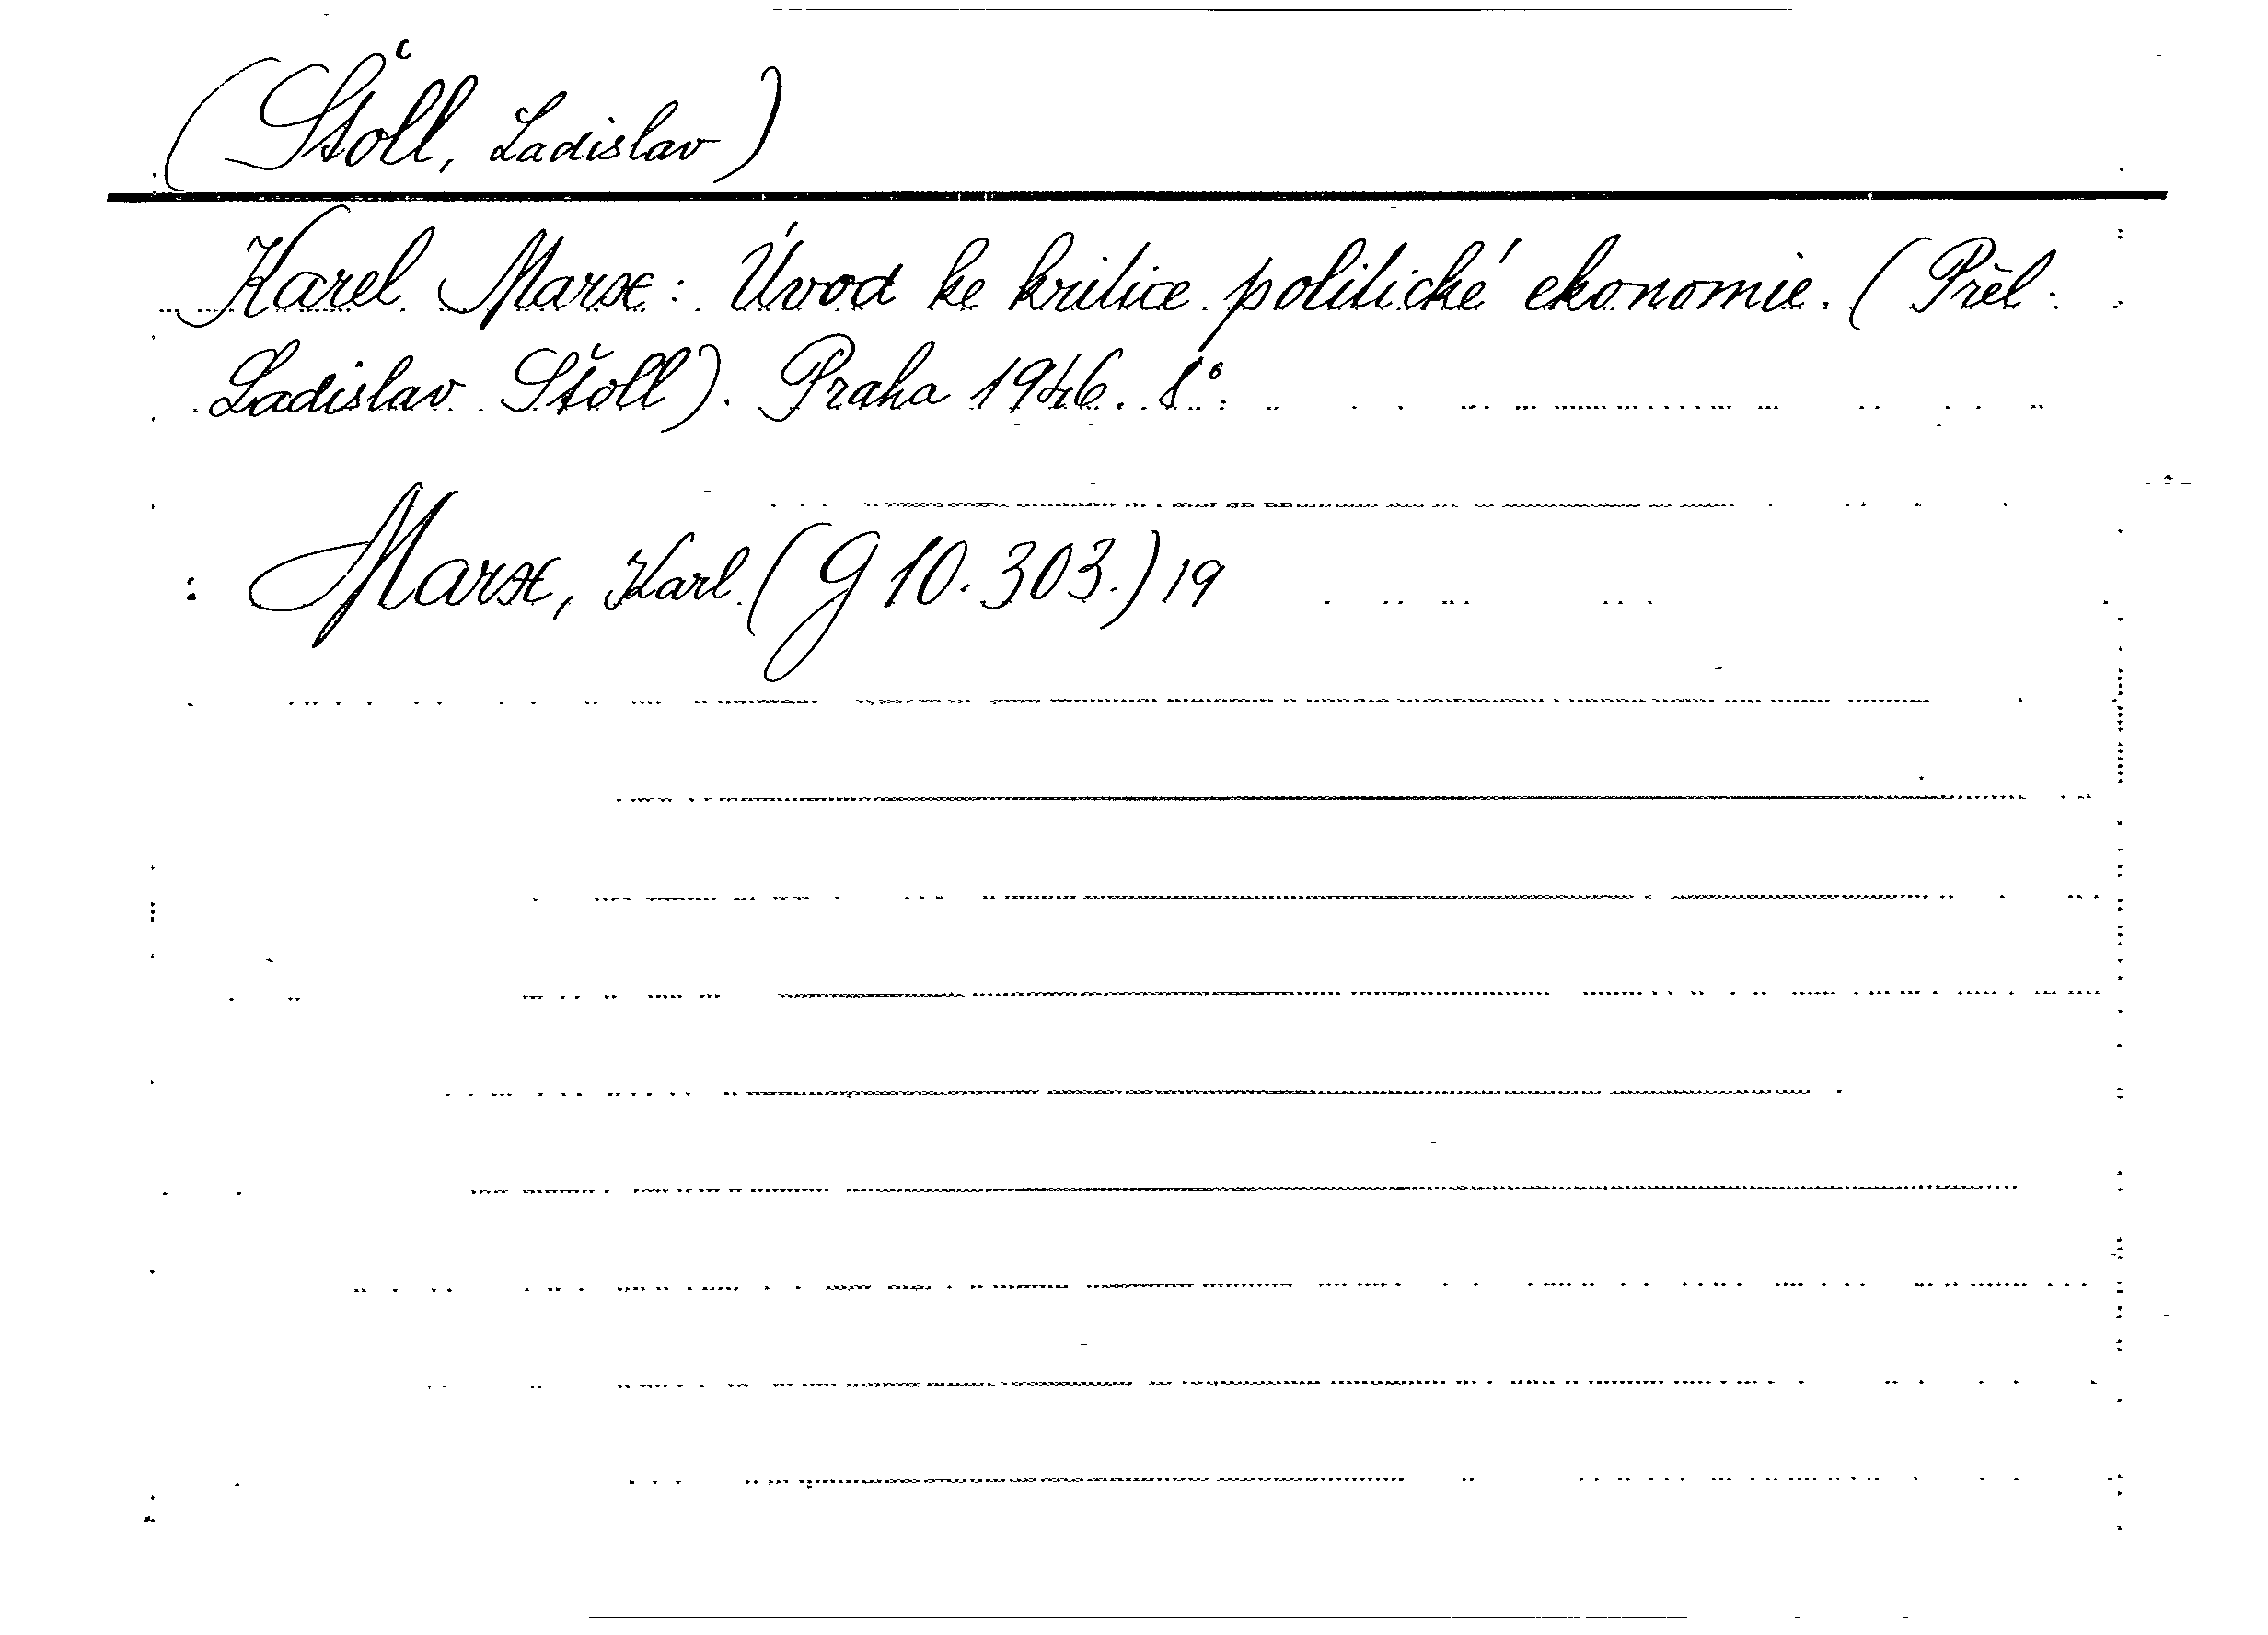 (Štoll, Ladislav)
Karel Marx: Úvod ke kritice politické ekonomie. (Přel.
Ladislav Štoll). Praha 1946. 8°.
Marx, Karl (G 10.303.) 19